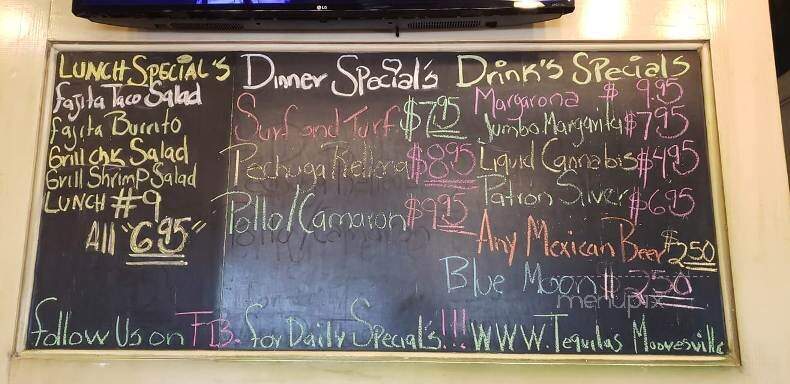 LG
LUNCH SPECIAL'S
fajita Taco Salad
fajita Burrito
Grill chk Salad
Grill Shrimp Salad
LUNCH #9
All "6.95"
Dinner Special's
Surf and Turf $7.95
Pechuga Rellena $8.95
Pollo/Camaron $9.95
Drink's Specials
Margarona $ 9.95
Jumbo Margarita $7.95
Liquid Cannabis $4.95
Patron Silver $6.95
Any Mexican Beer $2.50
Blue Moon $ 2.50
menupix
follow Us on F.B. for Daily Special's!!! WWW.Tequilas Mooresville